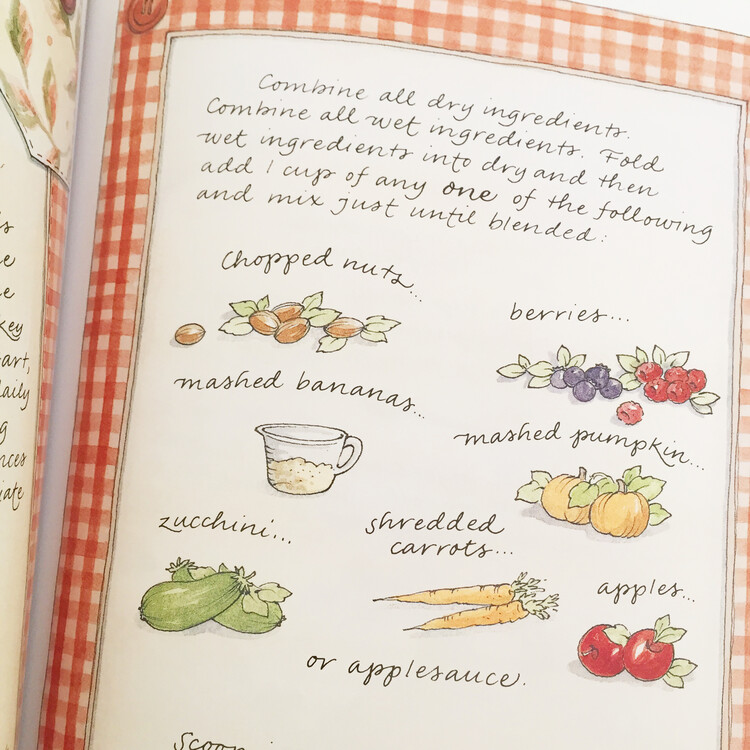 Combine all dry ingredients.
Combine all wet ingredients. Fold
wet ingredients into dry and then
add 1 cup of any one of the following
and mix just until blended:
chopped nuts...
berries...
mashed bananas...
mashed pumpkin...
zucchini...
shredded
carrots...
apples...
or applesauce.